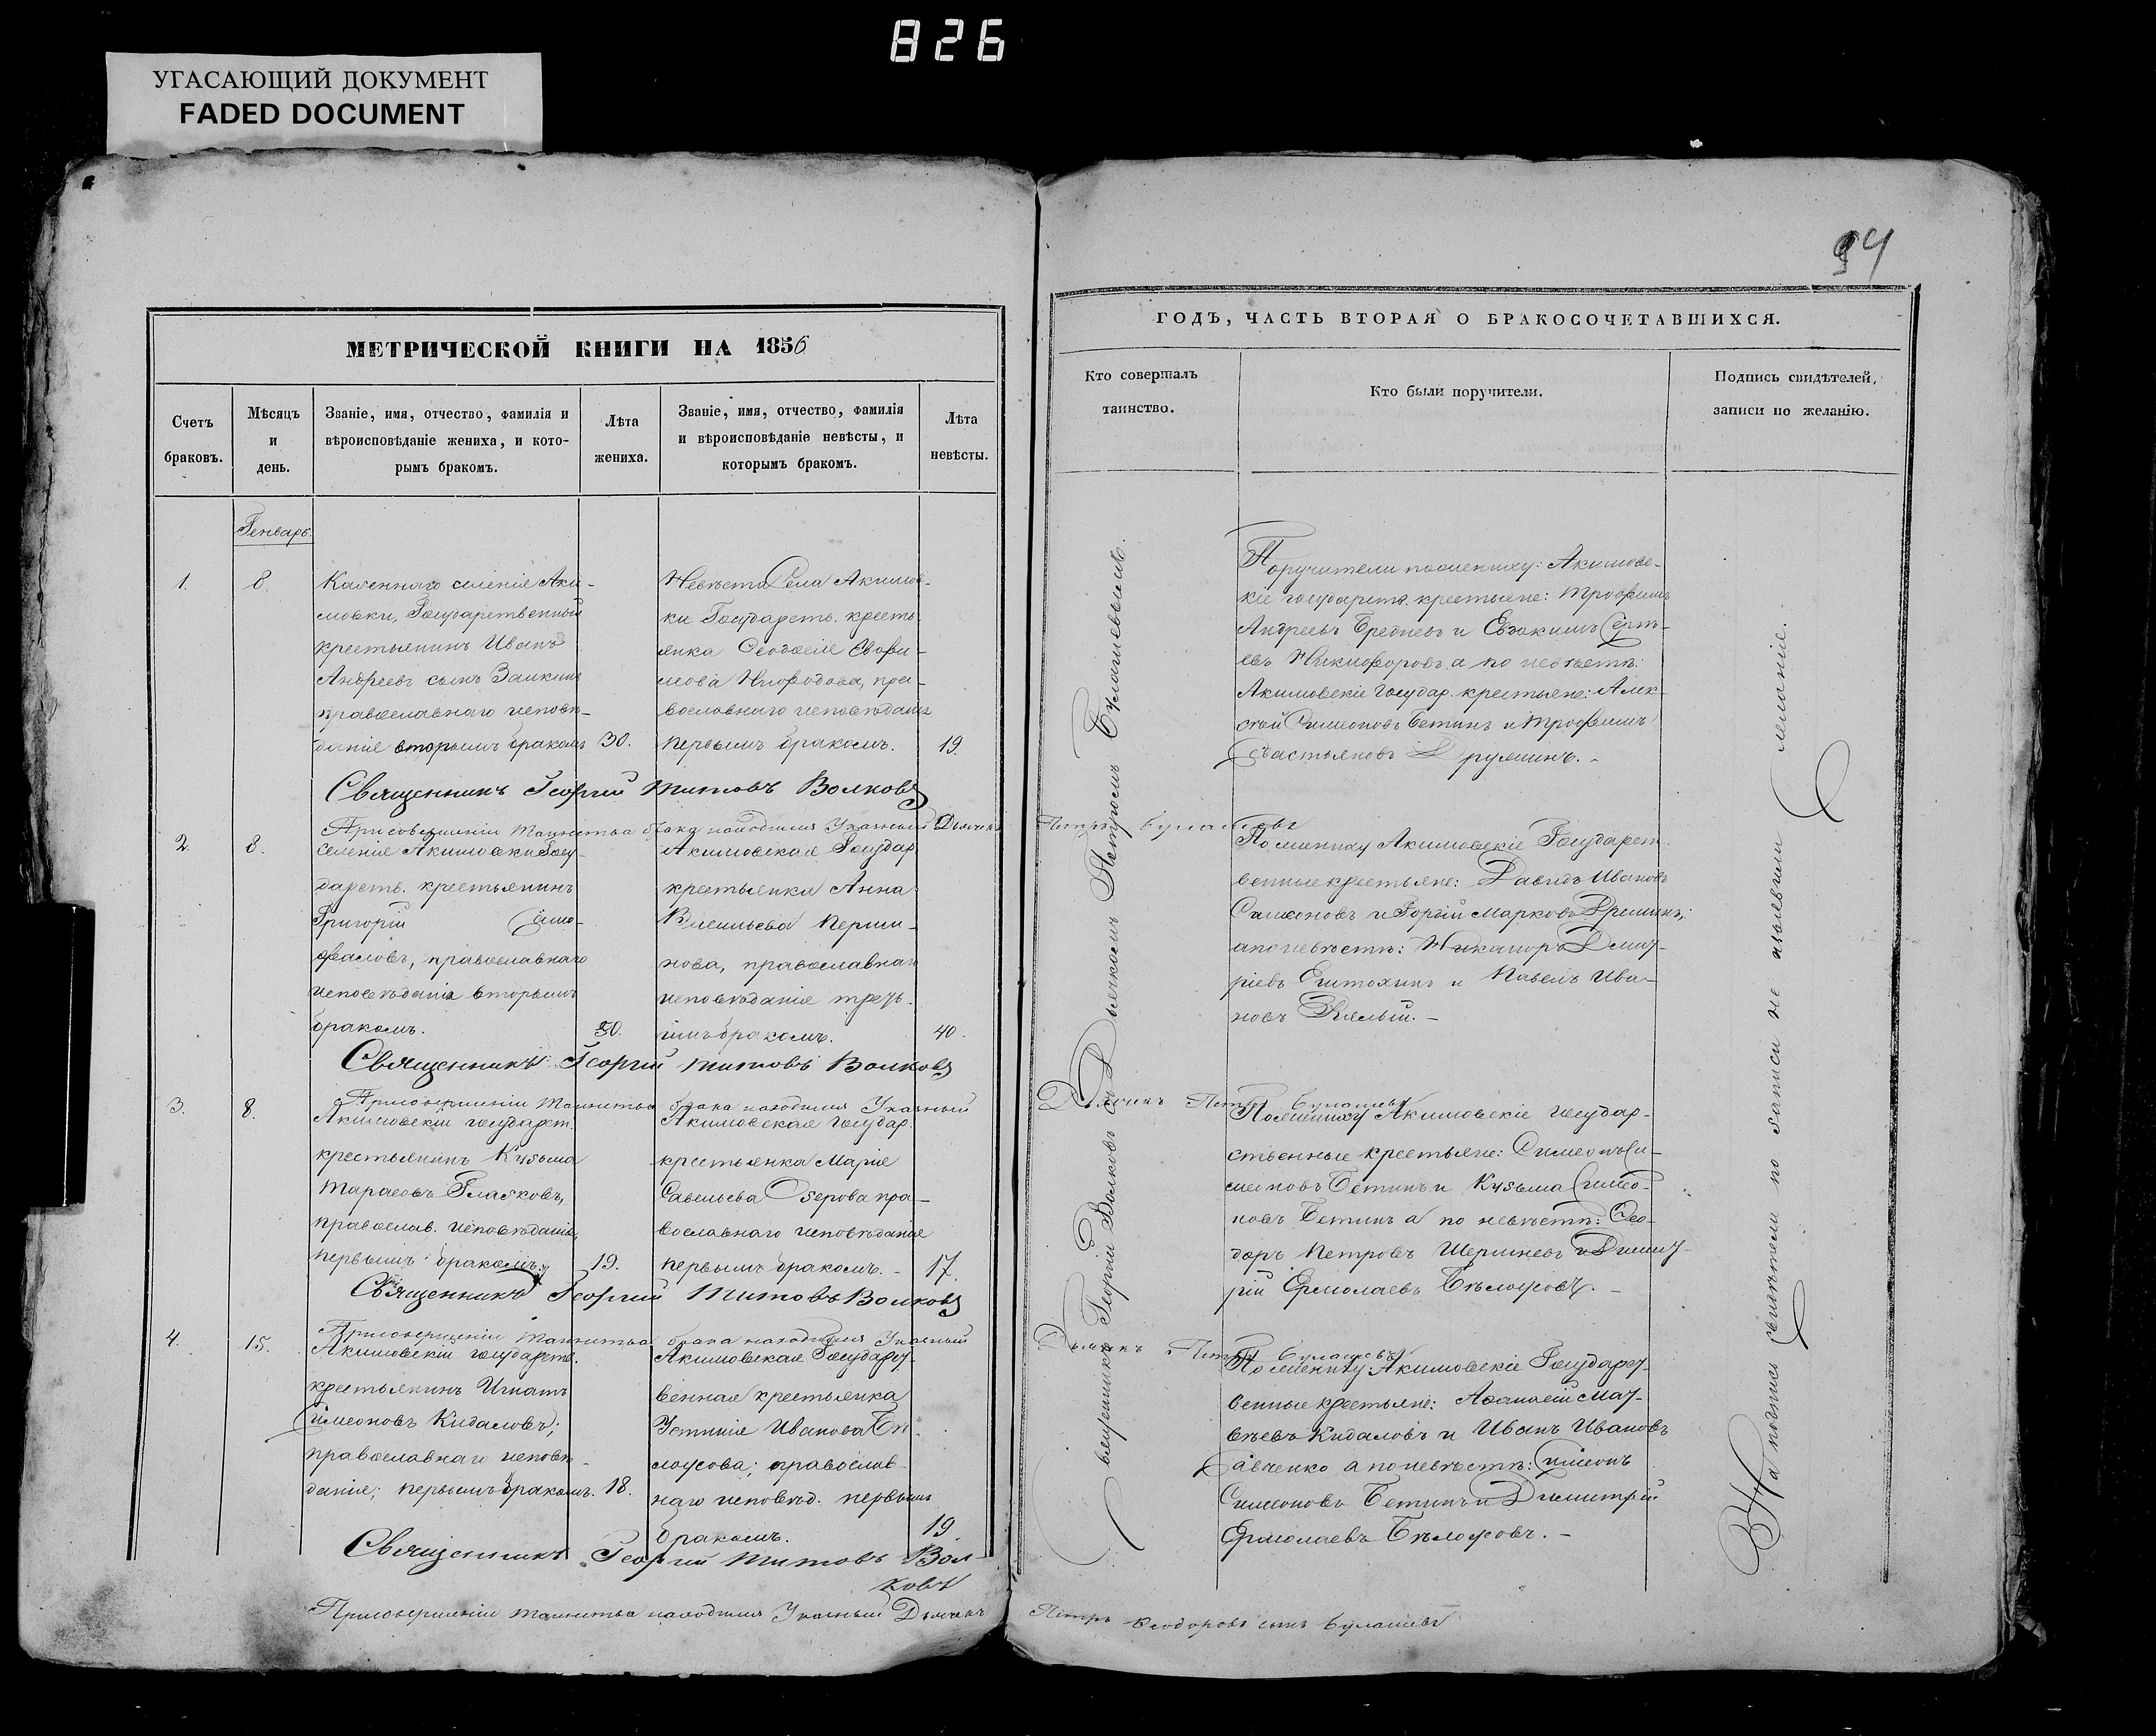 826
УГАСАЮЩИЙ ДОКУМЕНТ
FADED DOCUMENT
94
МЕТРИЧЕСКОЙ КНИГИ НА 1856
Счетъ браковъ.
Мѣсяцъ и день.
Званіе, имя, отчество, фамилія и
вѣроисповѣданіе жениха, и кото-
рымъ бракомъ.
Лѣта жениха.
Званіе, имя, отчество, фамилія
и вѣроисповѣданіе невѣсты, и
которымъ бракомъ.
Лѣта невѣсты.
Генварь.
1.
8.
Казеннаго селенія Аки-
мовки, Государственный
крестьянинъ Иванъ
Андреевъ сынъ Заикинъ
православнаго исповѣ-
данія вторымъ бракомъ
30.
Невѣста Села Акимов-
ки Государств. кресть-
янка Ѳеодосія
православнаго исповѣданія
первымъ бракомъ.
19.
Священникъ Георгій Титовъ Волковъ
При совершеніи таинства брака находился Указный Дьячекъ
2.
8.
Селенія Акимовки Госу-
дарств. крестьянинъ
Григорій
православнаго
исповѣданія вторымъ
бракомъ.
50.
Акимовская Государ.
крестьянка Анна
Васильева Перши-
нова, православнаго
исповѣданія треть-
имъ бракомъ.
40.
Священникъ Георгій Титовъ Волковъ
При совершеніи таинства брака находился Указный
3.
8.
Акимовскій государст.
крестьянинъ Кузьма
Тарасовъ Глазковъ,
православ. исповѣданія,
первымъ бракомъ.
19.
Акимовская государ.
крестьянка Марія
Савельева Озерова пра-
вославнаго исповѣданія
первымъ бракомъ. -
17.
Священникъ Георгій Титовъ Волковъ
При совершеніи таинства брака находился Указный
4.
15.
Акимовскій государств.
крестьянинъ Игнатъ
Симеоновъ Кидаловъ;
православнаго исповѣ-
данія; первымъ бракомъ.
18.
Акимовская Государст-
венная крестьянка
Устинія Иванова Бѣ-
лоусова; православ-
наго исповѣд. первымъ
бракомъ.
19.
Священникъ Георгій Титовъ Вол-
ковъ
При совершеніи таинства находился Указный Дьячекъ
ГОДЪ, ЧАСТЬ ВТОРАЯ О БРАКОСОЧЕТАВШИХСЯ.
Кто совершалъ
таинство.
Кто были поручители.
Подпись свидѣтелей,
записи по желанію.
Священникъ Георгій Волковъ съ Дьячкомъ Петромъ Булашевымъ.
Поручители по жениху: Акимовс-
кіе государств. крестьяне: Трофимъ
Андреевъ Бредневъ и Евдокимъ Сергѣ-
евъ Никифоровъ, а по невѣстѣ:
Акимовскіе государ. крестьяне: Алек-
сѣй Симеоновъ Бетинъ и Трофимъ
Севастьяновъ
Петръ Булашевъ
По жениху Акимовскіе Государст-
венные крестьяне: Давидъ Ивановъ
Симеоновъ и Марковъ
а по невѣстѣ: Никаноръ Дмит-
ріевъ и Павелъ Ива-
новъ
Дьячекъ Петръ Булашевъ
По жениху Акимовскіе государ-
ственные крестьяне: Симеонъ Си-
меоновъ Бетинъ и Кузьма Симео-
новъ Бетинъ а по невѣстѣ: Ѳео-
доръ Петровъ Шершневъ и Димит-
рій Ермолаевъ Бѣлоусовъ. -
Дьячекъ Петръ Булашевъ
По жениху Акимовскіе Государст-
венные крестьяне: Аѳанасій Мат-
вѣевъ Кидаловъ и Иванъ Ивановъ
Савченко а по невѣстѣ: Симеонъ
Симеоновъ Бетинъ и Димитрій
Ермолаевъ Бѣлоусовъ. -
Петръ Ѳеодоровъ сынъ Булашевъ
На подпись свидѣтели по записи не изъявили желаніе.